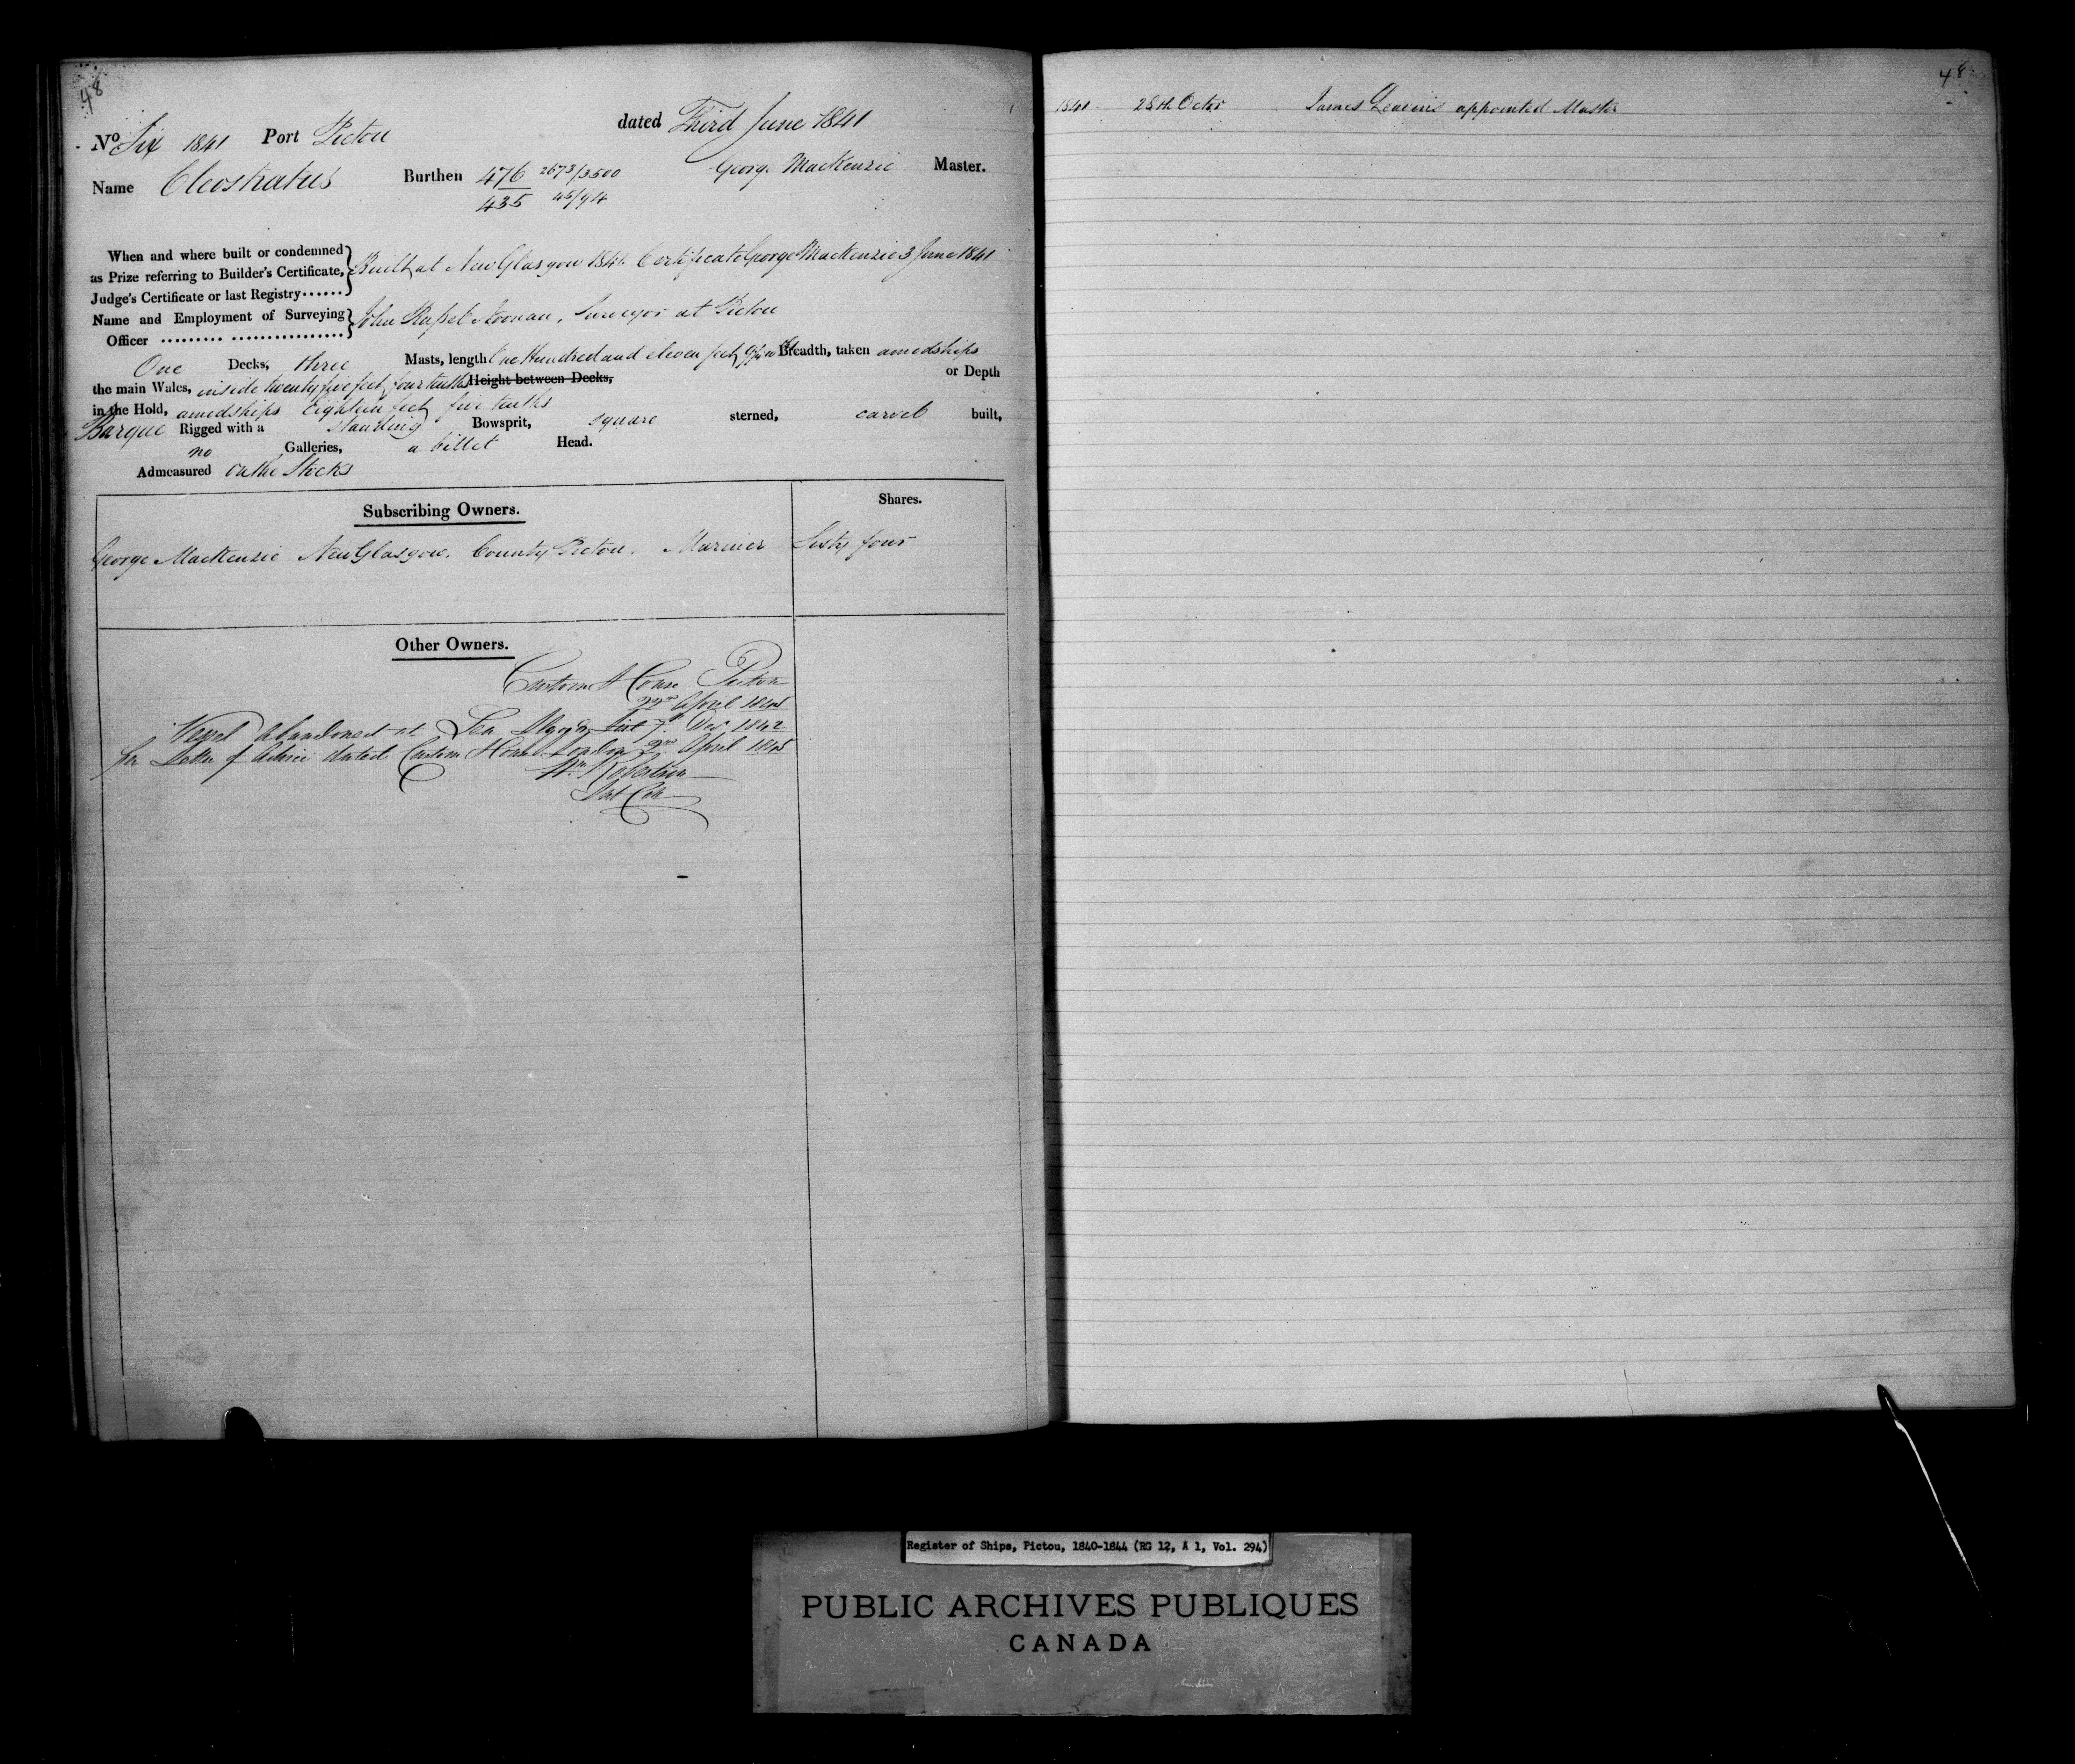 48
No Six 1841 Port Pictou dated Third June 1841
Name Cleostratus Burthen 476 2673/3500 George MacKenzie Master.
435 45/94
When and where built or condemned
as Prize referring to Builder's Certificate, Built at New Glasgow 1841. Certificate George MacKenzie 3 June 1841
Judge's Certificate or last Registry......
Name and Employment of Surveying John Noonan, Surveyor at Pictou
Officer ......... ..................
One Decks, three Masts, length One Hundred and eleven feet Breadth, taken amidships
the main Wales, inside twenty five feet four tenths Height between Decks, or Depth
in the Hold, amidships Eighteen feet five tenths
Barque Rigged with a standing Bowsprit, square sterned, carvel built,
no Galleries, a billet Head.
Admeasured on the Stocks
Subscribing Owners. Shares.
George MacKenzie New Glasgow. County Pictou. Mariner Sixty four
Other Owners.
Custom House Pictou
22nd April 1845
Vessel abandoned at Sea List Dec 1842
per Letter of Advice dated Custom House London 2nd April 1845
Wm Robertson
48
1841 28th Octr James appointed Master
Register of Ships, Pictou, 1840-1844 (RG 12, A 1, Vol. 294)
PUBLIC ARCHIVES PUBLIQUES
CANADA